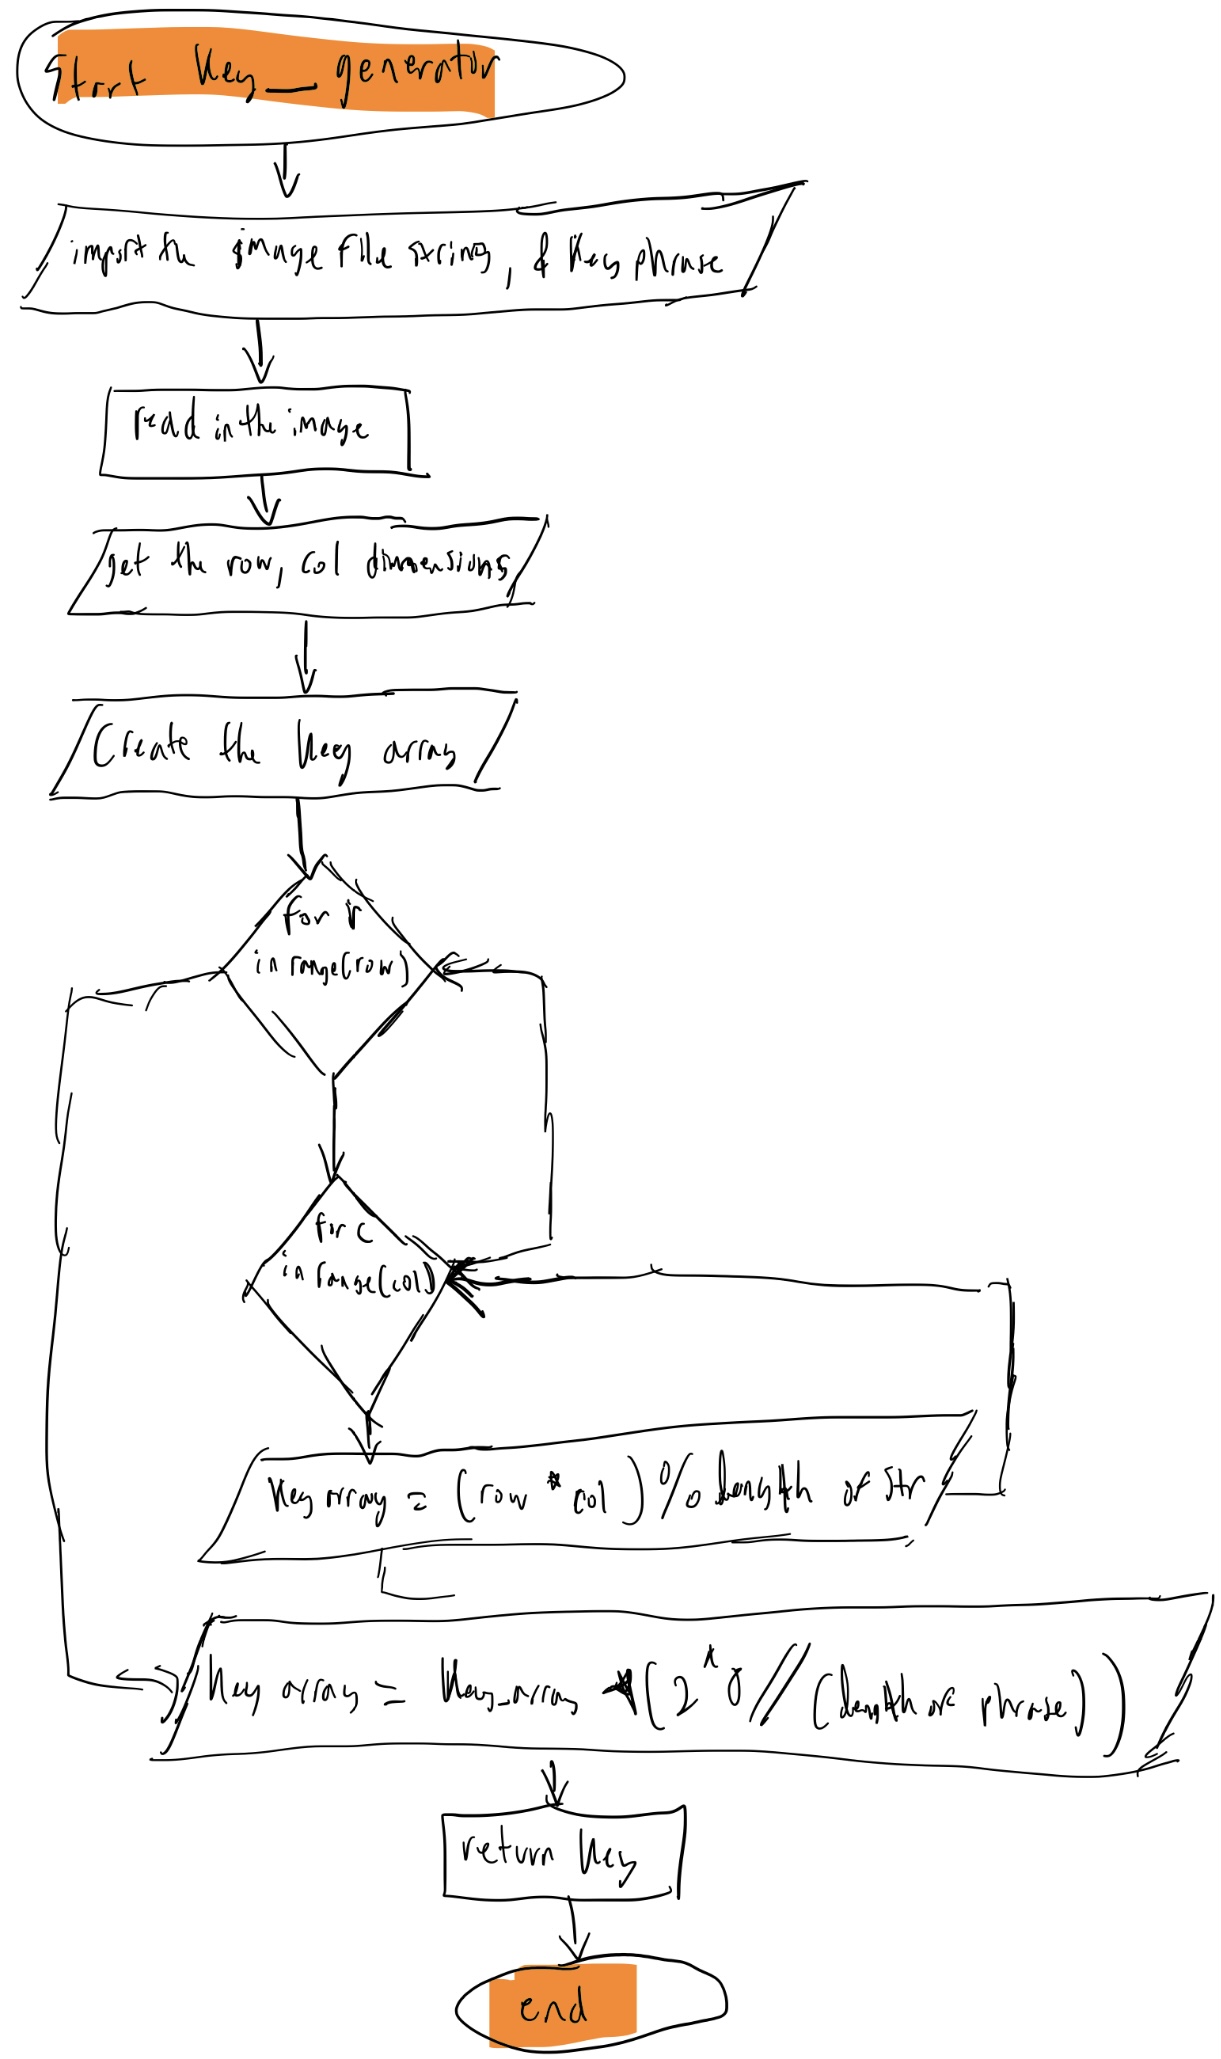 Start Key_generator
import the image file string, & Key phrase
read in the image
get the row, col dimensions
Create the Key array
for r
in range(row)
for c
in range(col)
Key array = (row * col) % length of str
Key array = Key_array *(2^8//(length of phrase))
return Key
end